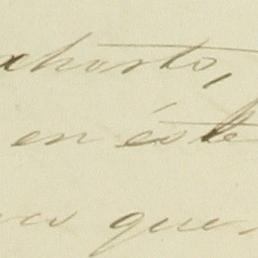 exhorto,
en éste
que